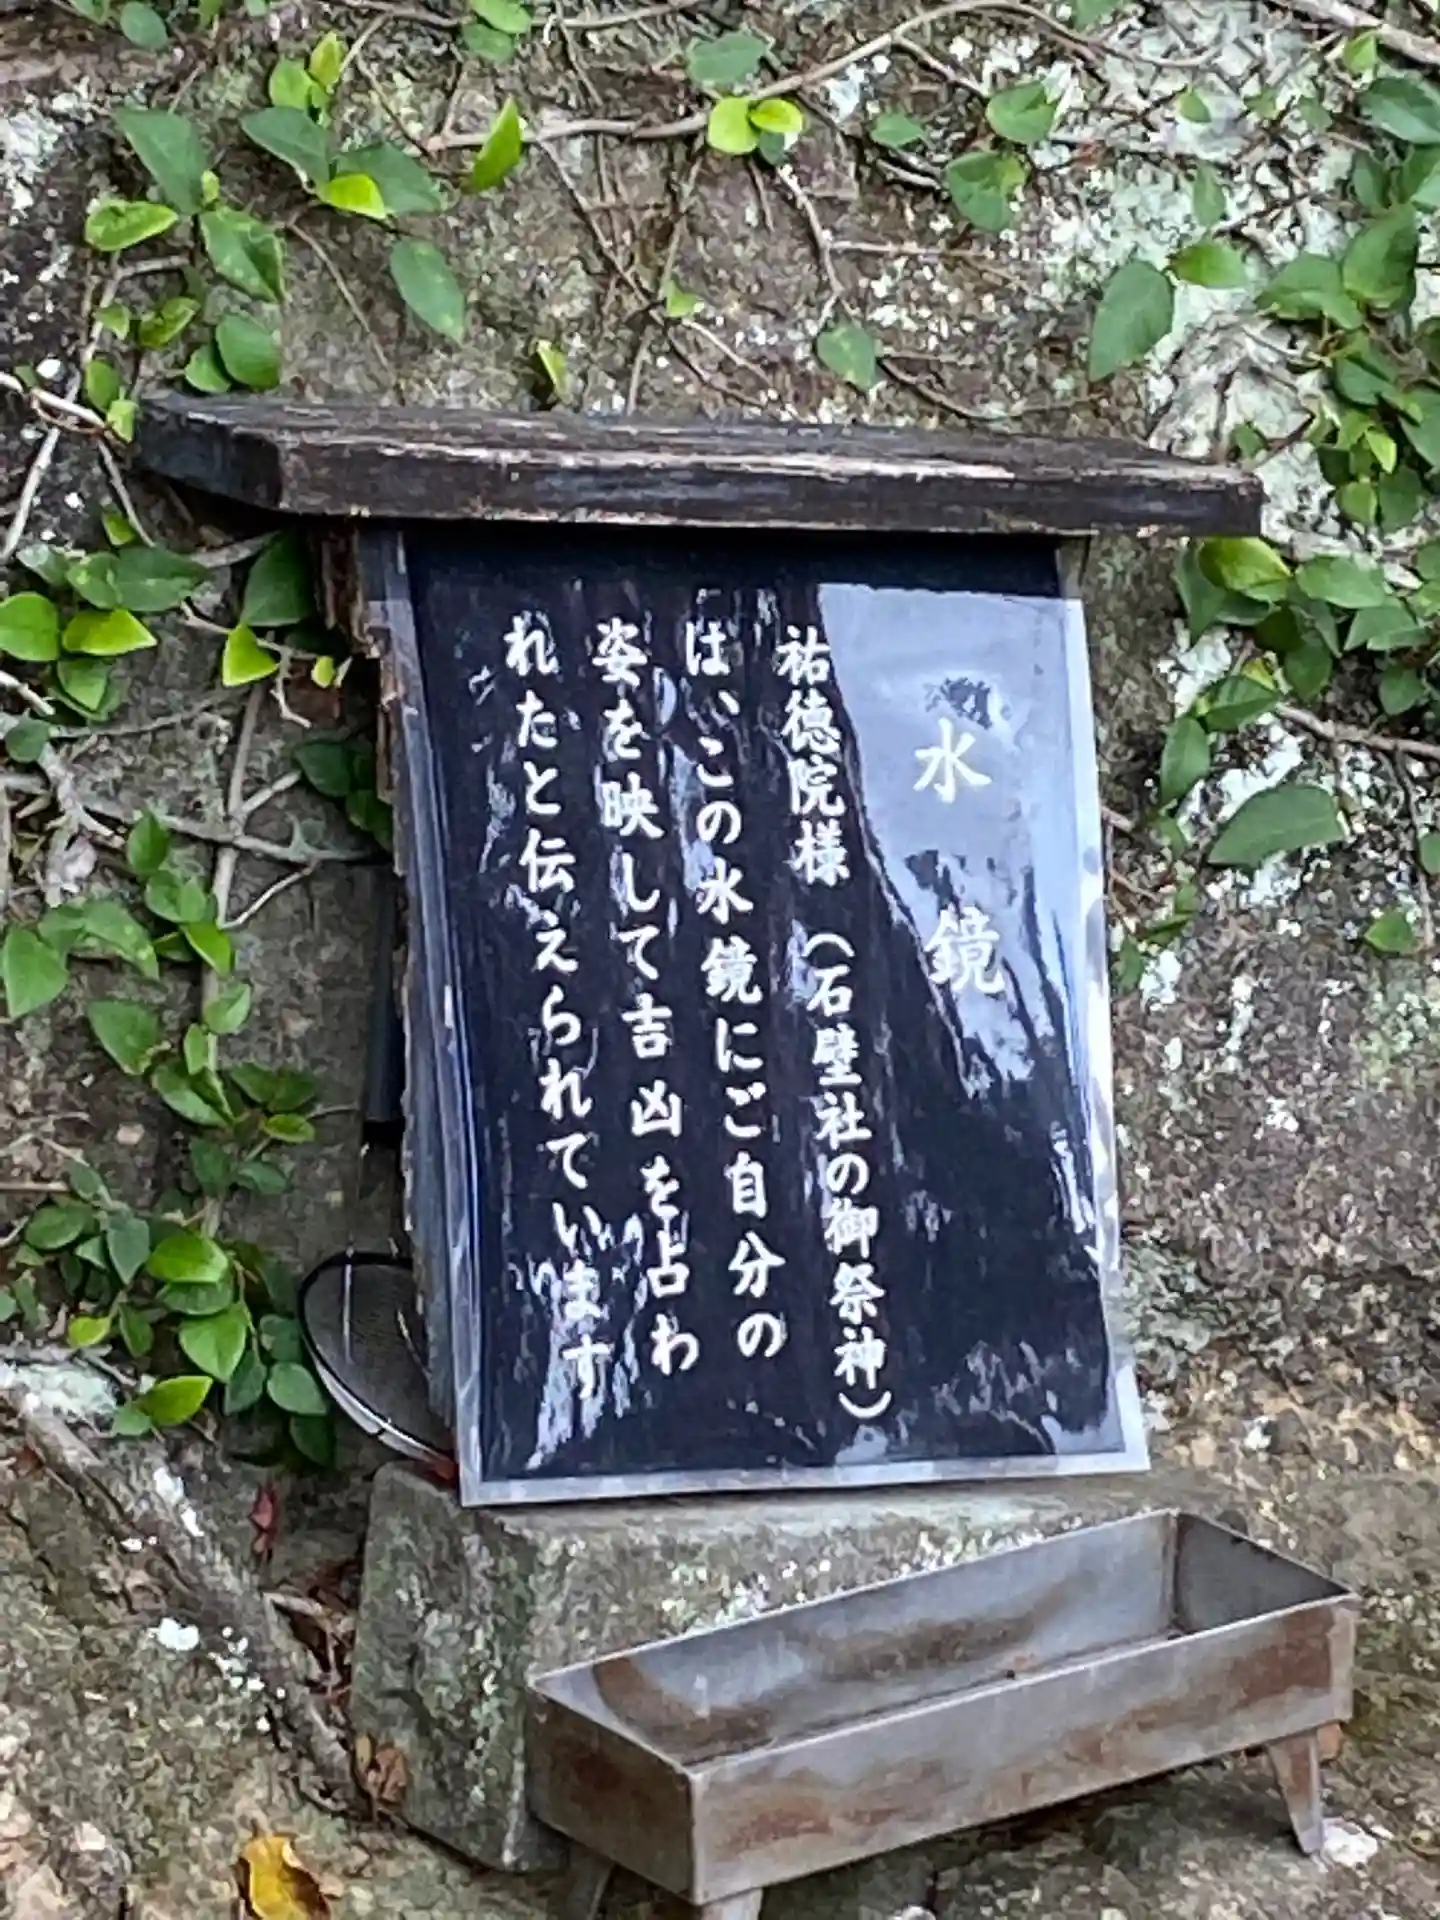 水鏡
祐徳院様（石壁社の御祭神）
は、この水鏡にご自分の
姿を映して吉凶を占わ
れたと伝えられています